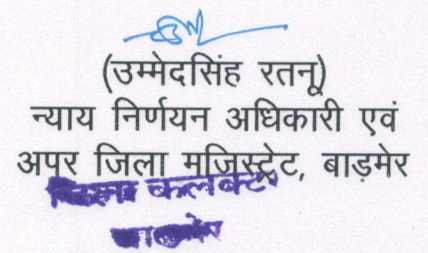 (उम्मेदसिंह रतनू)
न्याय निर्णयन अधिकारी एवं
अपर जिला मजिस्ट्रेट, बाड़मेर
जिला कलक्टर
बाड़मेर